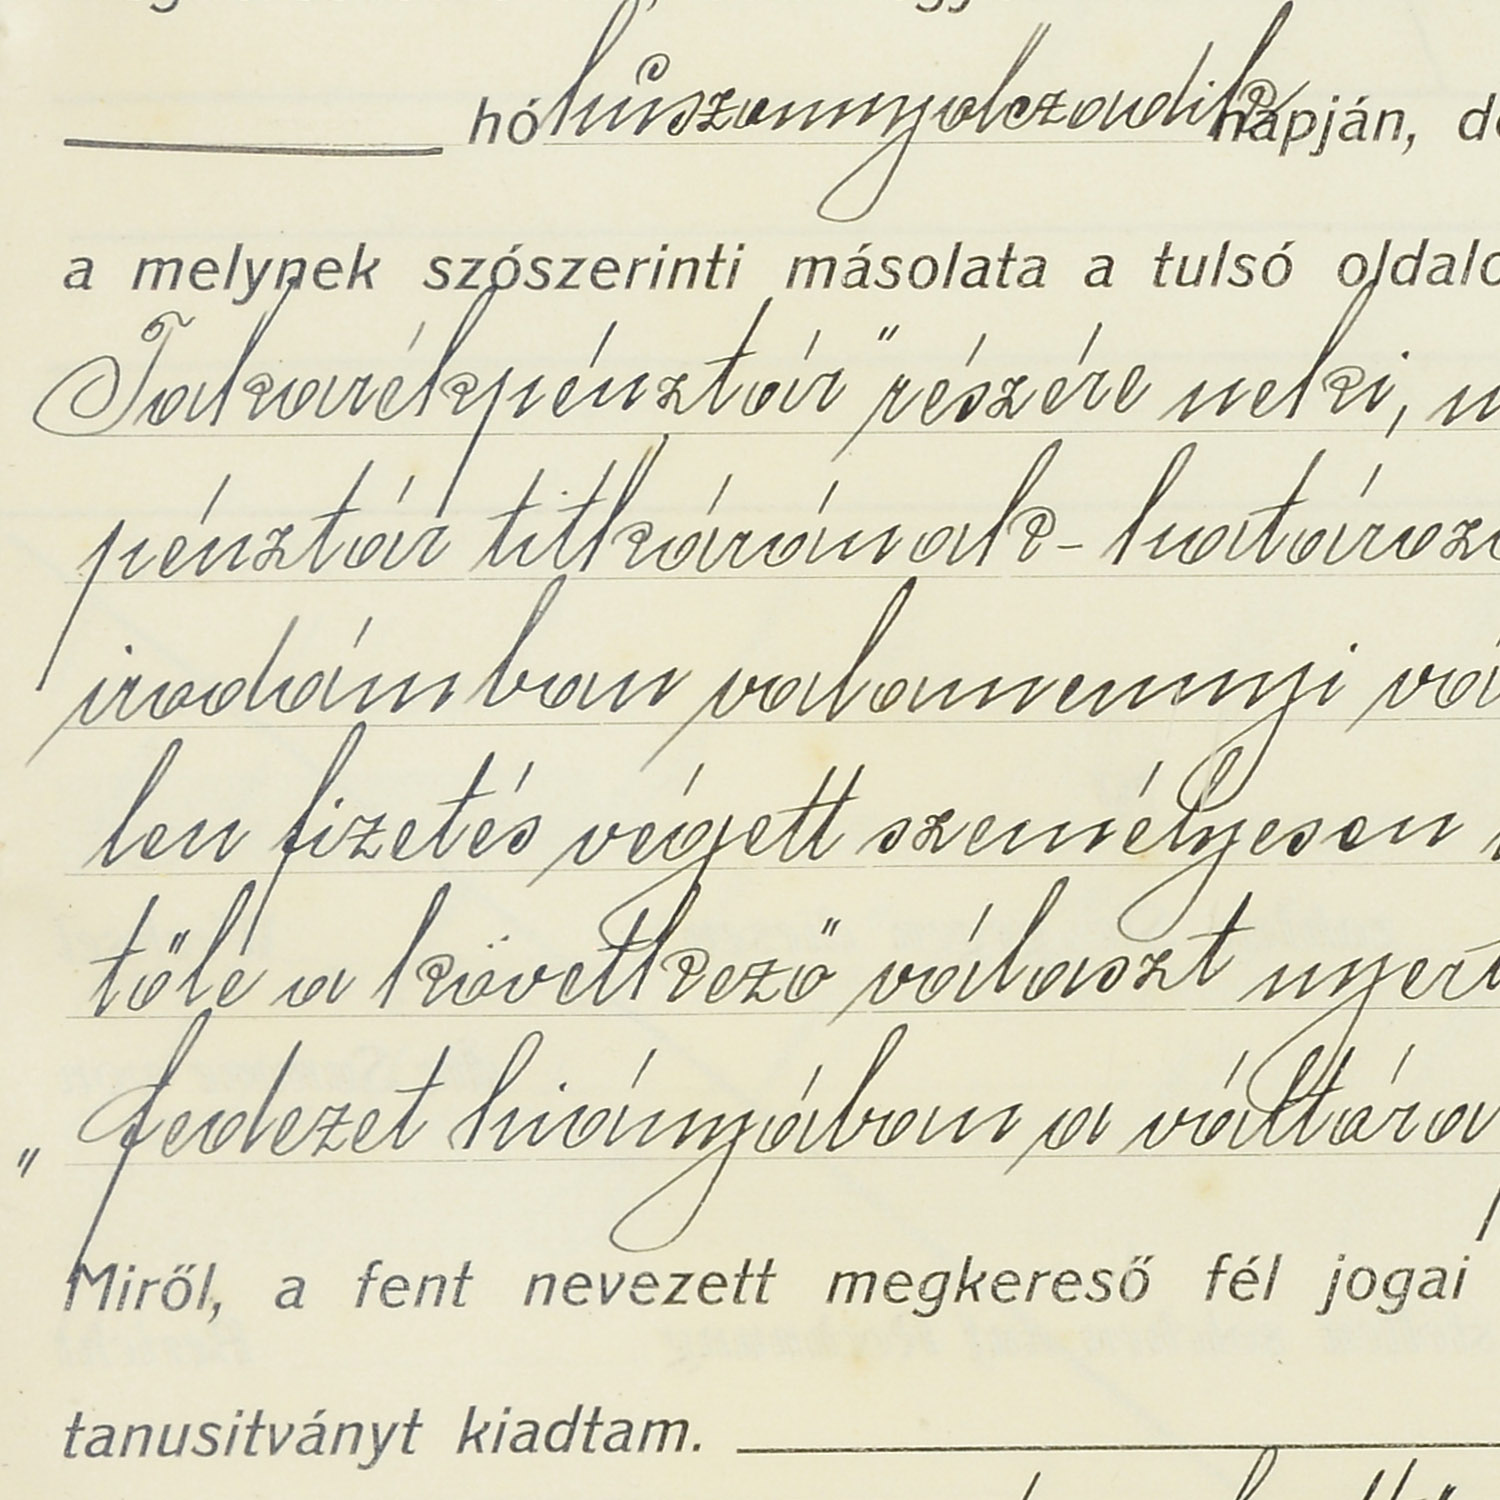 hó huszonnyolczadik napján, de
a melynek szószerinti másolata a tulsó oldalo
Takarékpénztár" részére neki,
pénztár titkárának - határozo
irodámban valamennyi vá
len fizetés végett személyesen
tőle a következő választ nyert
„ fedezet hiányában a váltára
Miről, a fent nevezett megkereső fél jogai
tanusitványt kiadtam.